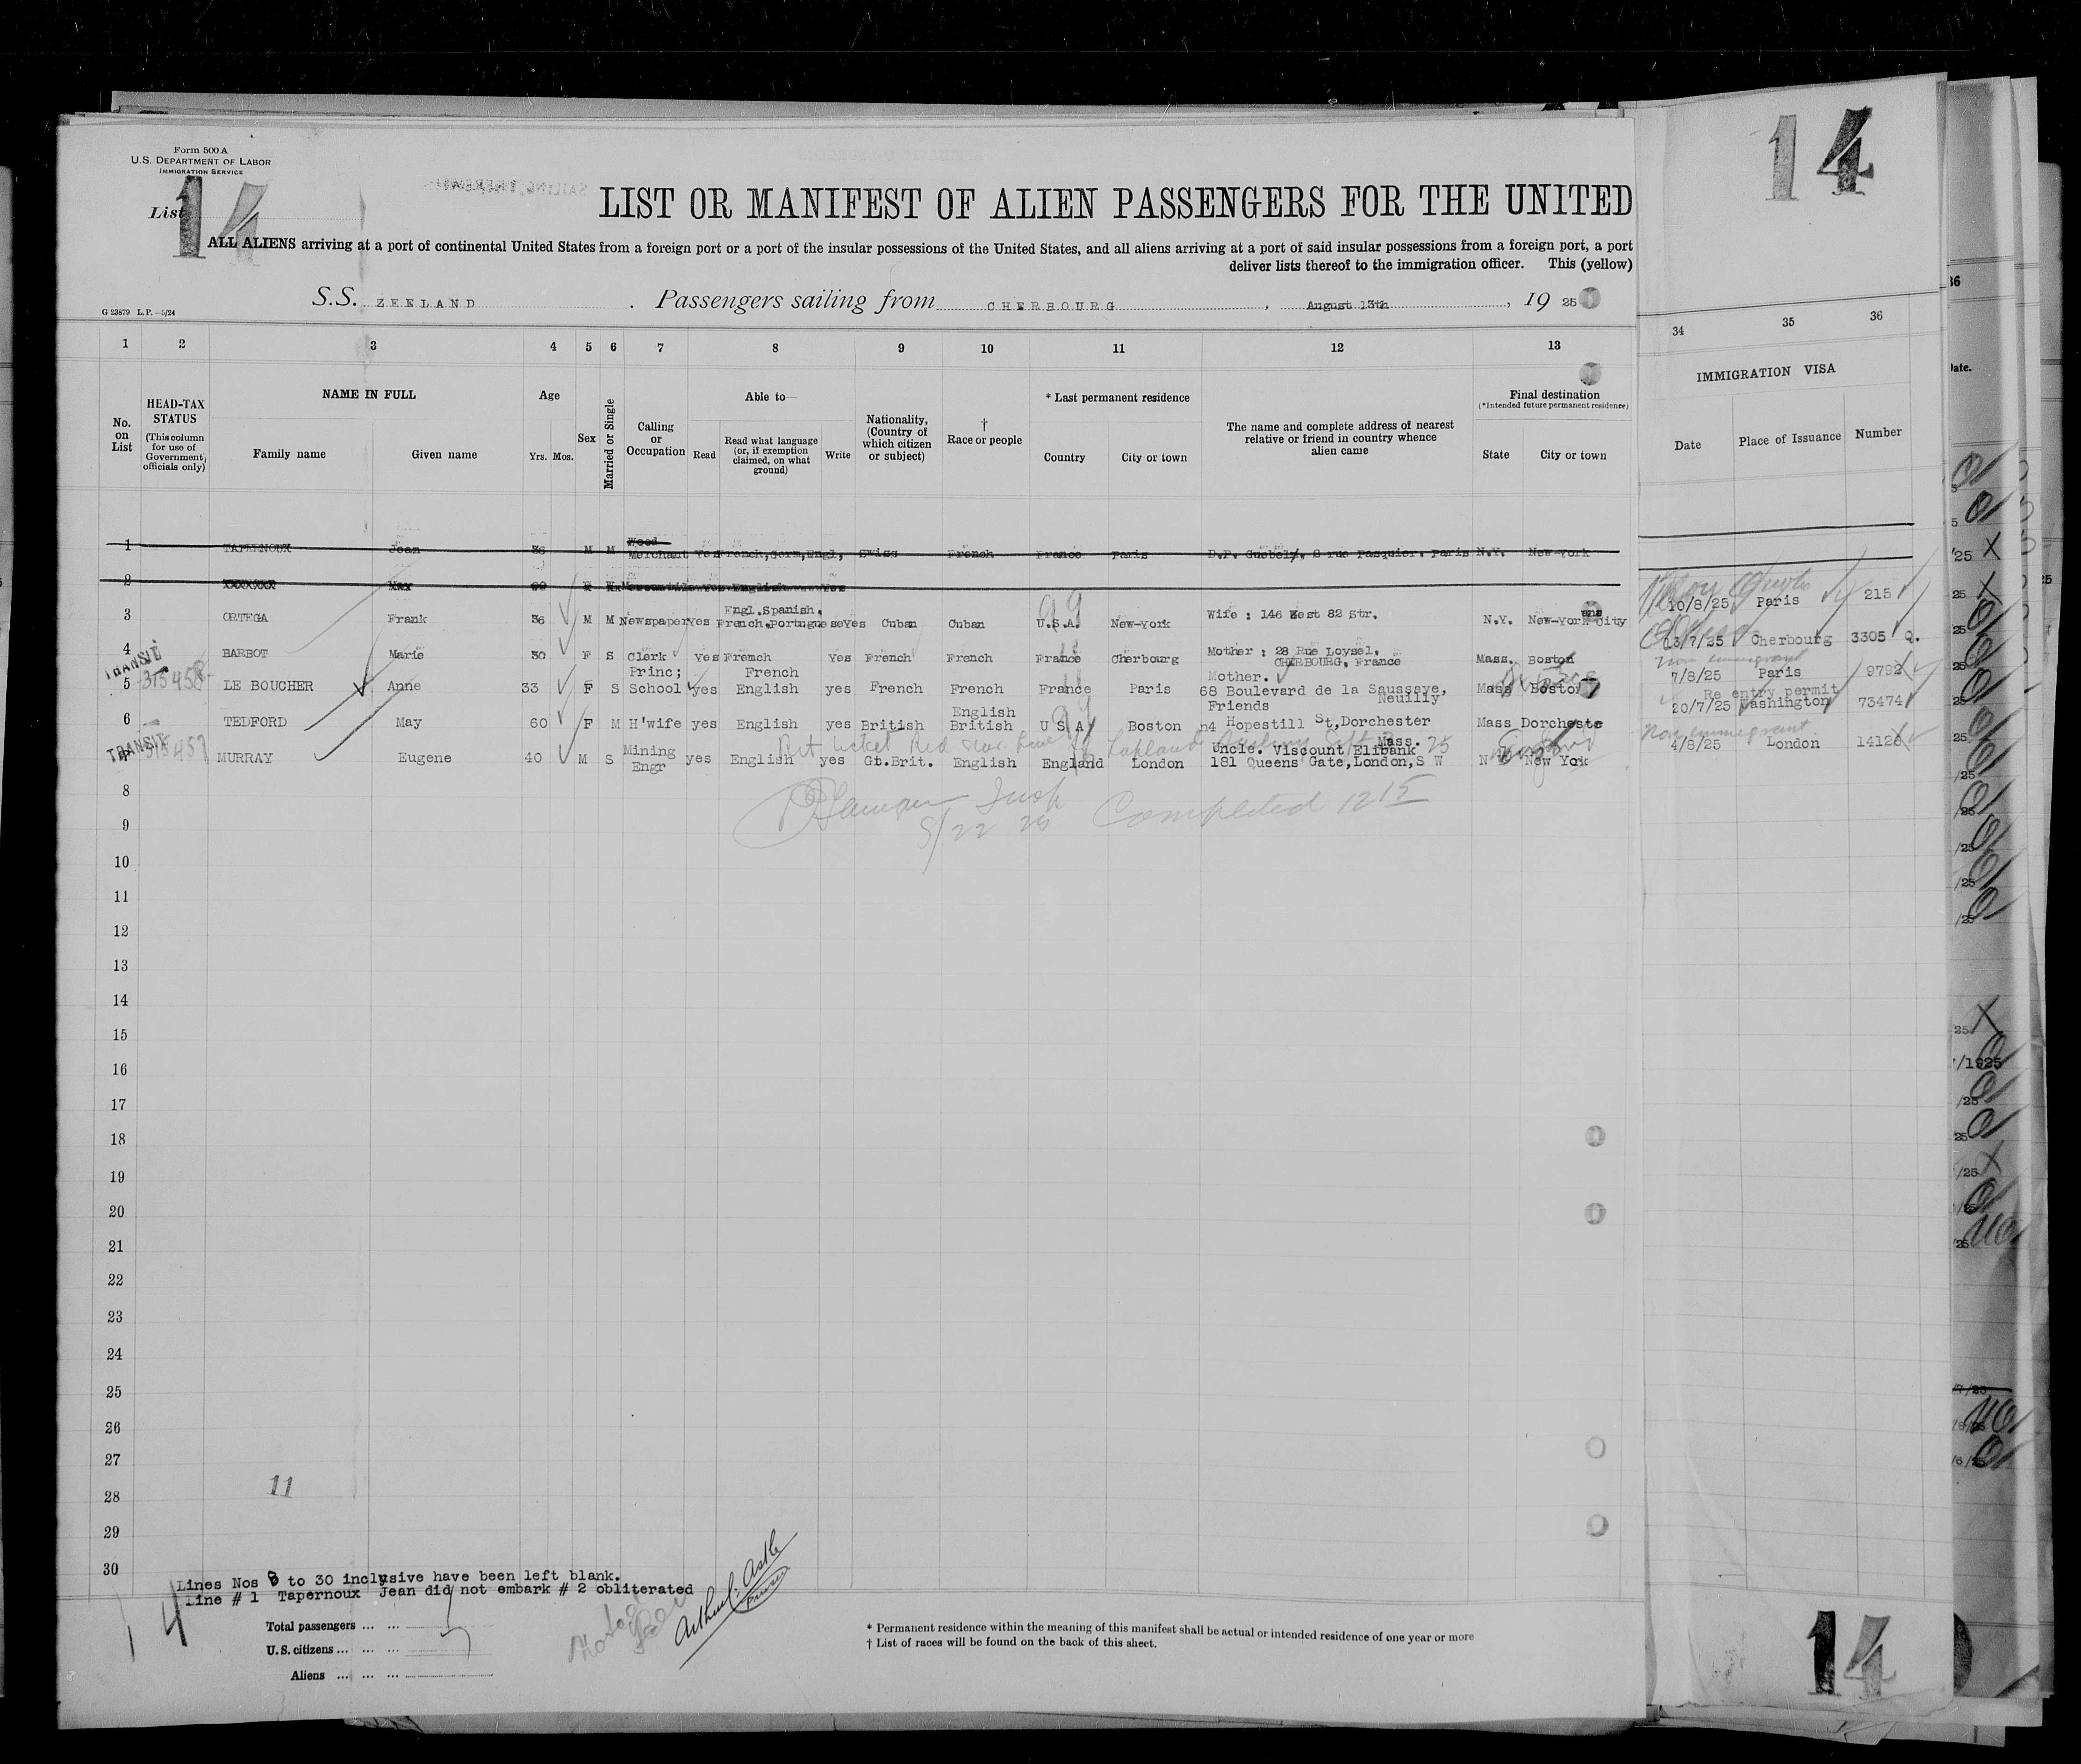 Form 500 A
U.S. DEPARTMENT OF LABOR
IMMIGRATION SERVICE
List 14
14
LIST OR MANIFEST OF ALIEN PASSENGERS FOR THE UNITED
ALL ALIENS arriving at a port of continental United States from a foreign port or a port of the insular possessions of the United States, and all aliens arriving at a port of said insular possessions from a foreign port, a port
deliver lists thereof to the immigration officer. This (yellow)
S.S. ZEELAND. Passengers sailing from CHERBOURG, August 13th, 19 25
G 23879 L.P.—5/24
1 2 3 4 5 6 7 8 9 10 11 12 13 34 35 36
No. on List
HEAD-TAX STATUS
(This column for use of Government officials only)
NAME IN FULL
Family name Given name
Age
Yrs. Mos.
Sex
Married or Single
Calling or Occupation
Able to—
Read Read what language (or, if exemption claimed, on what ground) Write
Nationality, (Country of which citizen or subject)
† Race or people
* Last permanent residence
Country City or town
The name and complete address of nearest relative or friend in country whence alien came
Final destination
(*Intended future permanent residence)
State City or town
IMMIGRATION VISA
Date Place of Issuance Number
1 TAPERNOUX Jean 36 M M Wood Merchant Yes French, Germ, Engl, Swiss French France Paris 8 rue Pasquier. Paris N.Y. New-York
2 Max
3 ORTEGA Frank 36 M M Newspaper Yes Engl. Spanish. French. Portuguese Yes Cuban Cuban U.S.A. New-York Wife : 146 West 82 Str. N.Y. New-York City 10/8/25 Paris 215
4 BARBOT Marie 30 F S Clerk Yes French Yes French French France Cherbourg Mother : 28 Rue Loysel. CHERBOURG. France Mass. Boston 13/7/25 Cherbourg 3305 Q.
TRANSIT
315458
5 LE BOUCHER Anne 33 F S Princ; School yes French English yes French French France Paris Mother. 68 Boulevard de la Saussaye, Neuilly Mass Boston non immigrant 7/8/25 Paris 9792
6 TEDFORD May 60 F M H'wife yes English yes British English British U S A Boston Friends n4 Hopestill St, Dorchester Mass. Mass Dorcheste Re entry permit 20/7/25 Washington 73474
TRANSIT
315457
MURRAY Eugene 40 M S Mining Engr yes English yes Gt.Brit. English England London Uncle. Viscount Elibank 181 Queens Gate, London, S W N New Yok Non immigrant 4/8/25 London 14126
Red Star Line Lapland
Insp Completed 12 15
8/22 25
8
9
10
11
12
13
14
15
16
17
18
19
20
21
22
23
24
25
26
27
28
29
30
11
Lines Nos 8 to 30 inclusive have been left blank.
Line # 1 Tapernoux Jean did not embark # 2 obliterated
14
Total passengers ... ...
U.S. citizens ... ... ... 7
Aliens ... ... ...
Arthur Astle
Purser
* Permanent residence within the meaning of this manifest shall be actual or intended residence of one year or more
† List of races will be found on the back of this sheet.
14